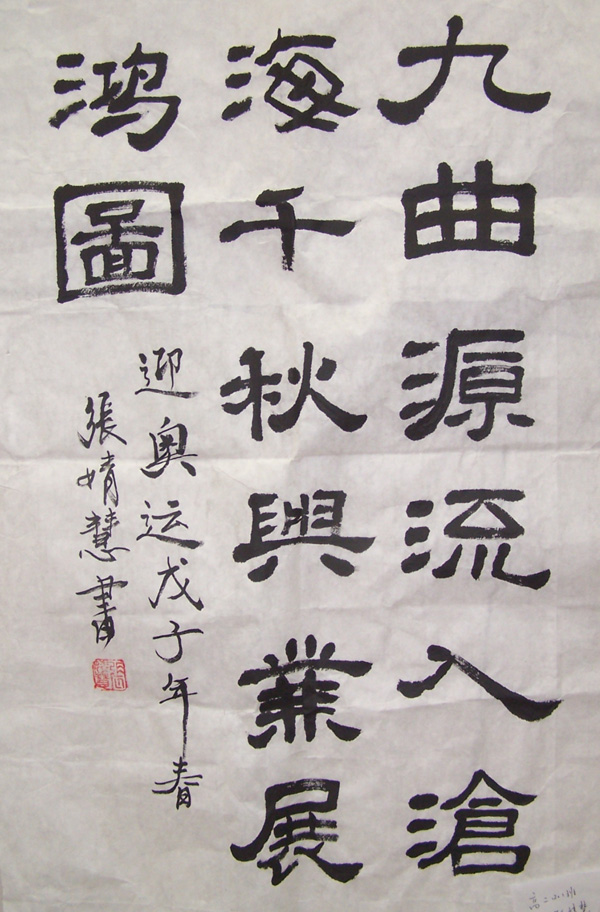 九曲源流入滄
海千秋興業展
鴻圖
迎奥运戊子年春
張婧慧書